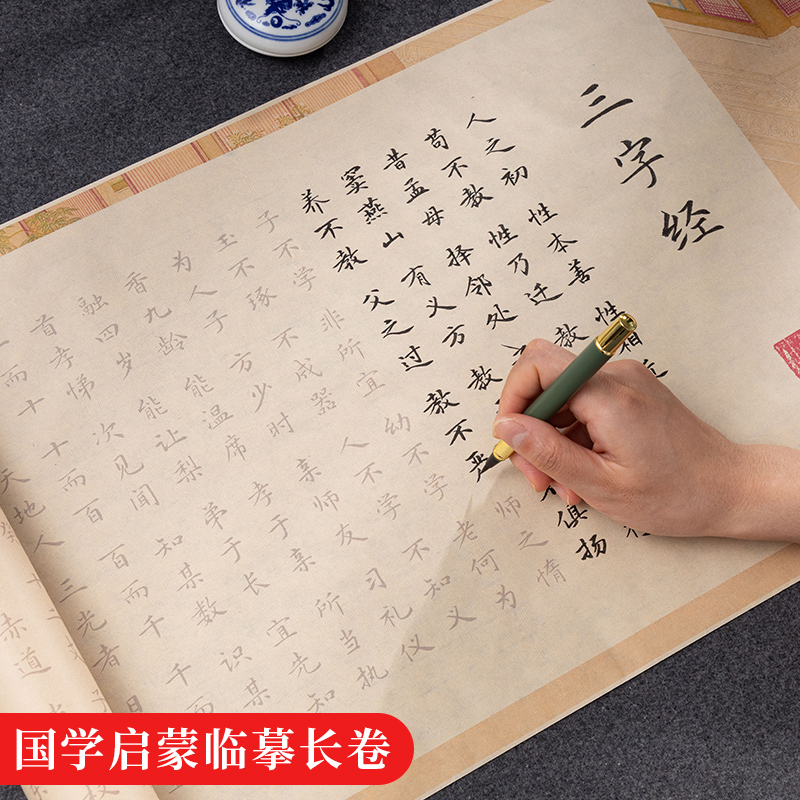 三字经
人之初 性本善 性相近
苟不教 性乃迁 教
昔孟母 择邻处
窦燕山 有义方 教 俱扬
养不教 父之过 教不严 师之惰
子不学 非所宜 幼不学 老何为
玉不琢 不成器 人不学 不知义
为人子 方少时 亲师友 习礼仪
香九龄 能温席 孝于亲 所当执
融四岁 能让梨 弟于长 宜先知
首孝悌 次见闻 知某数 识某
一而十 十而百 百而千 千而
天地人 三光者 日
赤道
国学启蒙临摹长卷